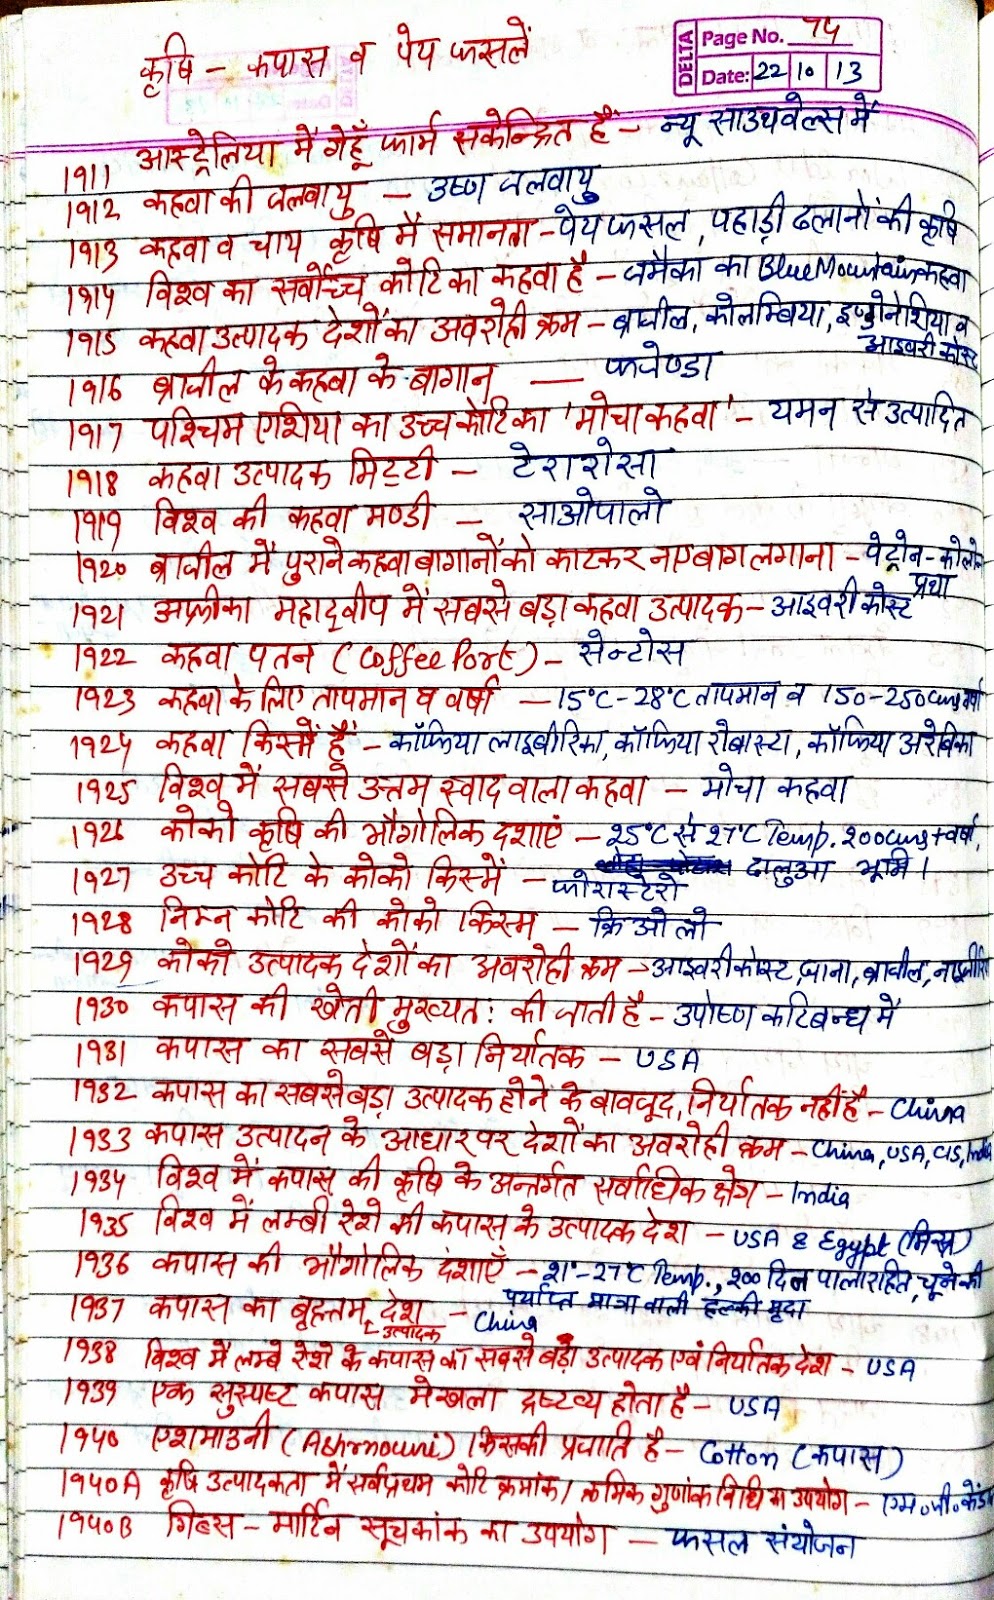 कृषि - कपास व पेय फसलें
DELTA
Page No. 74
Date: 22 10 13
1911 आस्ट्रेलिया में गेहूँ फार्म सकेन्द्रित हैं - न्यू साउथवेल्स में
1912 कहवा की जलवायु - उष्ण जलवायु
1913 कहवा व चाय कृषि में समानता - पेय फसल, पहाड़ी ढलानों की कृषि
1914 विश्व का सर्वोच्च कोटि का कहवा है - जमैका का Blue Mountain कहवा
1915 कहवा उत्पादक देशों का अवरोही क्रम - ब्राजील, कोलम्बिया, इण्डोनेशिया व
आइवरी कोस्ट
1916 ब्राजील के कहवा के बागान - फजेण्डा
1917 पश्चिम एशिया का उच्च कोटि का 'मोचा कहवा' - यमन से उत्पादित
1918 कहवा उत्पादक मिट्टी - टेरारोसा
1919 विश्व की कहवा मण्डी - साओपालो
1920 ब्राजील में पुराने कहवा बागानों को काटकर नए बाग लगाना - पेट्रोन-कोलोन
प्रथा
1921 अफ्रीका महाद्वीप में सबसे बड़ा कहवा उत्पादक - आइवरी कोस्ट
1922 कहवा पतन (Coffee Port) - सेन्टोस
1923 कहवा के लिए तापमान व वर्षा - 15°C-28°C तापमान व 150-250cms वर्षा
1924 कहवा किस्में हैं - कॉफिया लाइबीरिका, कॉफिया रोबास्टा, कॉफिया अरेबिका
1925 विश्व में सबसे उत्तम स्वाद वाला कहवा - मोचा कहवा
1926 कोको कृषि की भौगोलिक दशाएं - 25°C से 27°C Temp. 200cms+वर्षा,
ढालुआ भूमि।
1927 उच्च कोटि के कोको किस्में - फोरास्टेरो
1928 निम्न कोटि की कोको किस्म - क्रिओलो
1929 कोको उत्पादक देशों का अवरोही क्रम - आइवरी कोस्ट, घाना, ब्राजील,
1930 कपास की खेती मुख्यत: की जाती है - उपोष्ण कटिबन्ध में
1931 कपास का सबसे बड़ा निर्यातक - USA
1932 कपास का सबसे बड़ा उत्पादक होने के बावजूद, निर्यातक नहीं है - China
1933 कपास उत्पादन के आधार पर देशों का अवरोही क्रम - China, USA, CIS, India
1934 विश्व में कपास की कृषि के अन्तर्गत सर्वाधिक क्षेत्र - India
1935 विश्व में लम्बी रेशे की कपास के उत्पादक देश - USA & Egypt (मिस्र)
1936 कपास की भौगोलिक दशाएँ - 21°-27°C Temp., 200 दिन पालारहित, चूने की
पर्याप्त मात्रा वाली हल्की मृदा
1937 कपास का बृहत्तम उत्पादक देश - China
1938 विश्व में लम्बे रेशे के कपास का सबसे बड़ा उत्पादक एवं निर्यातक देश - USA
1939 एक सुस्पष्ट कपास मेखला द्रष्टव्य होता है - USA
1940 एशमाउनी (Ashmouni) किसकी प्रजाति है - Cotton (कपास)
1940A कृषि उत्पादकता में सर्वप्रथम कोटि क्रमांक / क्रमिक गुणांक विधि का उपयोग - एम॰जी॰केंडल
1940B गिब्स - मार्टिन सूचकांक का उपयोग - फसल संयोजन